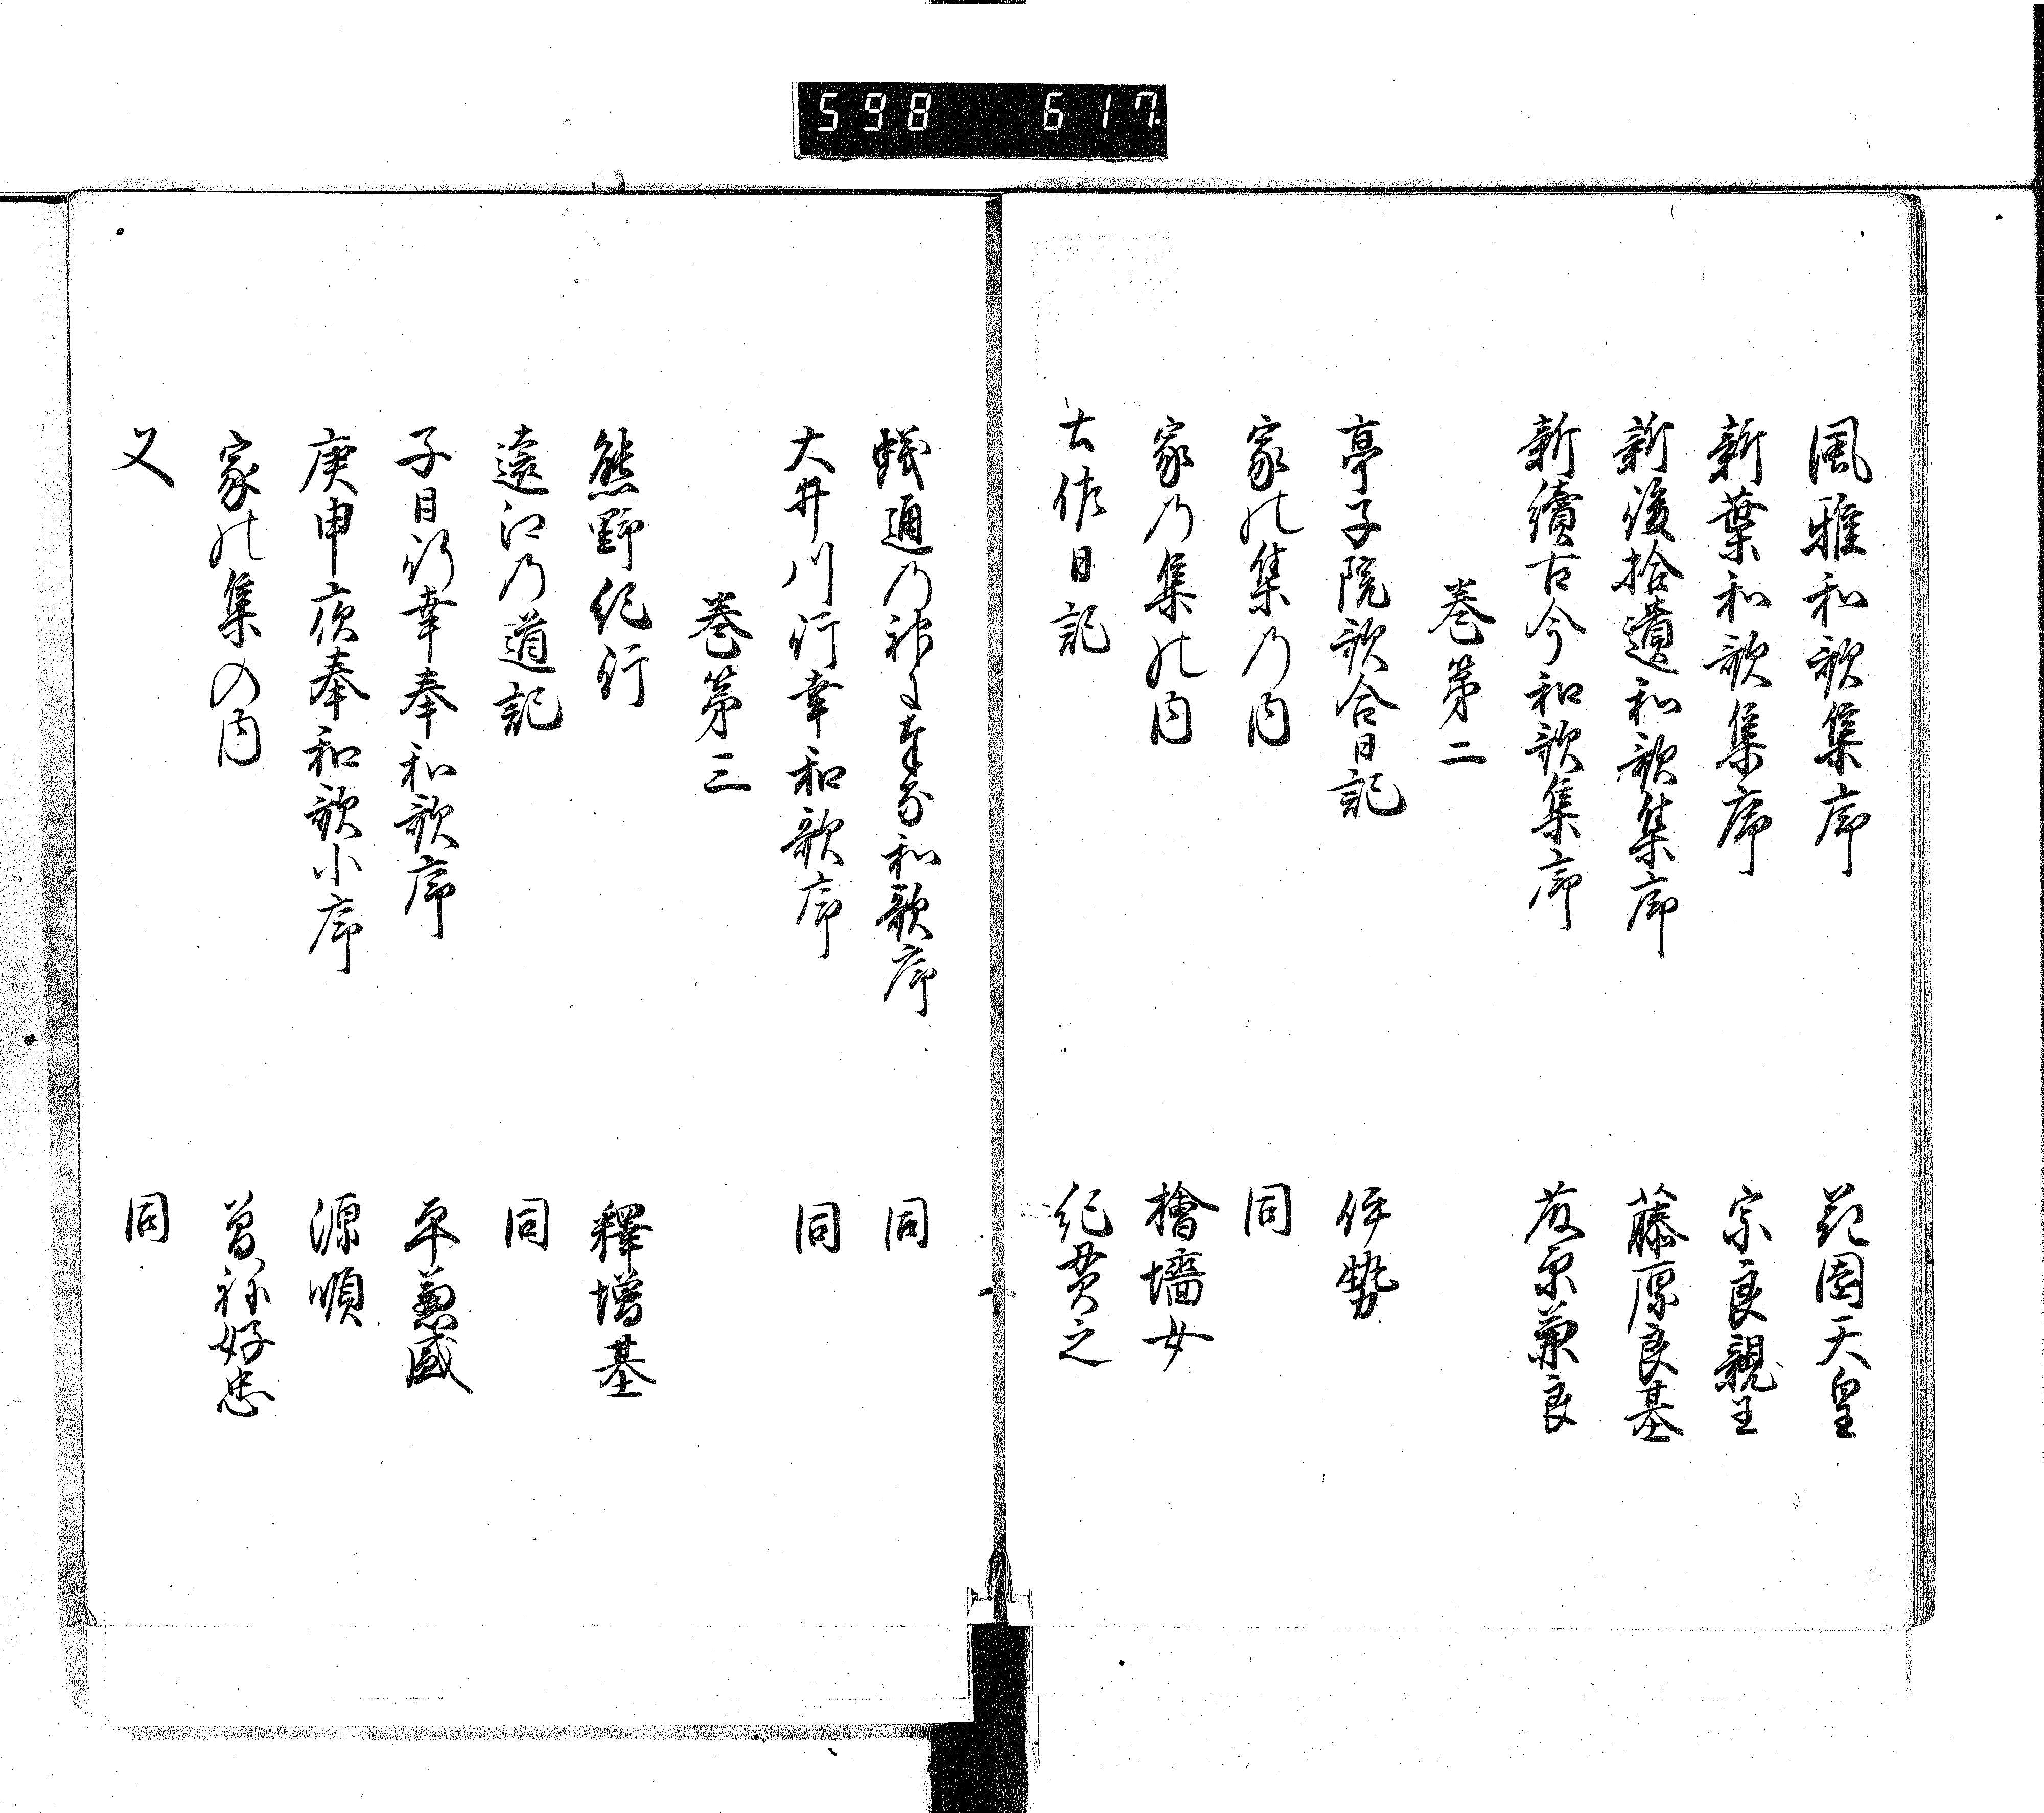 598 617
風雅和歌集序 花園天皇
新葉和歌集序 宗良親王
新後拾遺和歌集序 藤原良基
新續古今和歌集序 藤原兼良
巻第二
亭子院歌合日記 伊勢
家の集乃内 同
家乃集の内 檜墻女
土佐日記 紀貫之
蟻通乃神に奉る和歌序 同
大井川行幸和歌序 同
巻第三
熊野紀行 釋増基
遠江乃道記 同
子日行幸奉和歌序 平兼盛
庚申夜奉和歌小序 源順
家の集の内 曽祢好忠
又 同